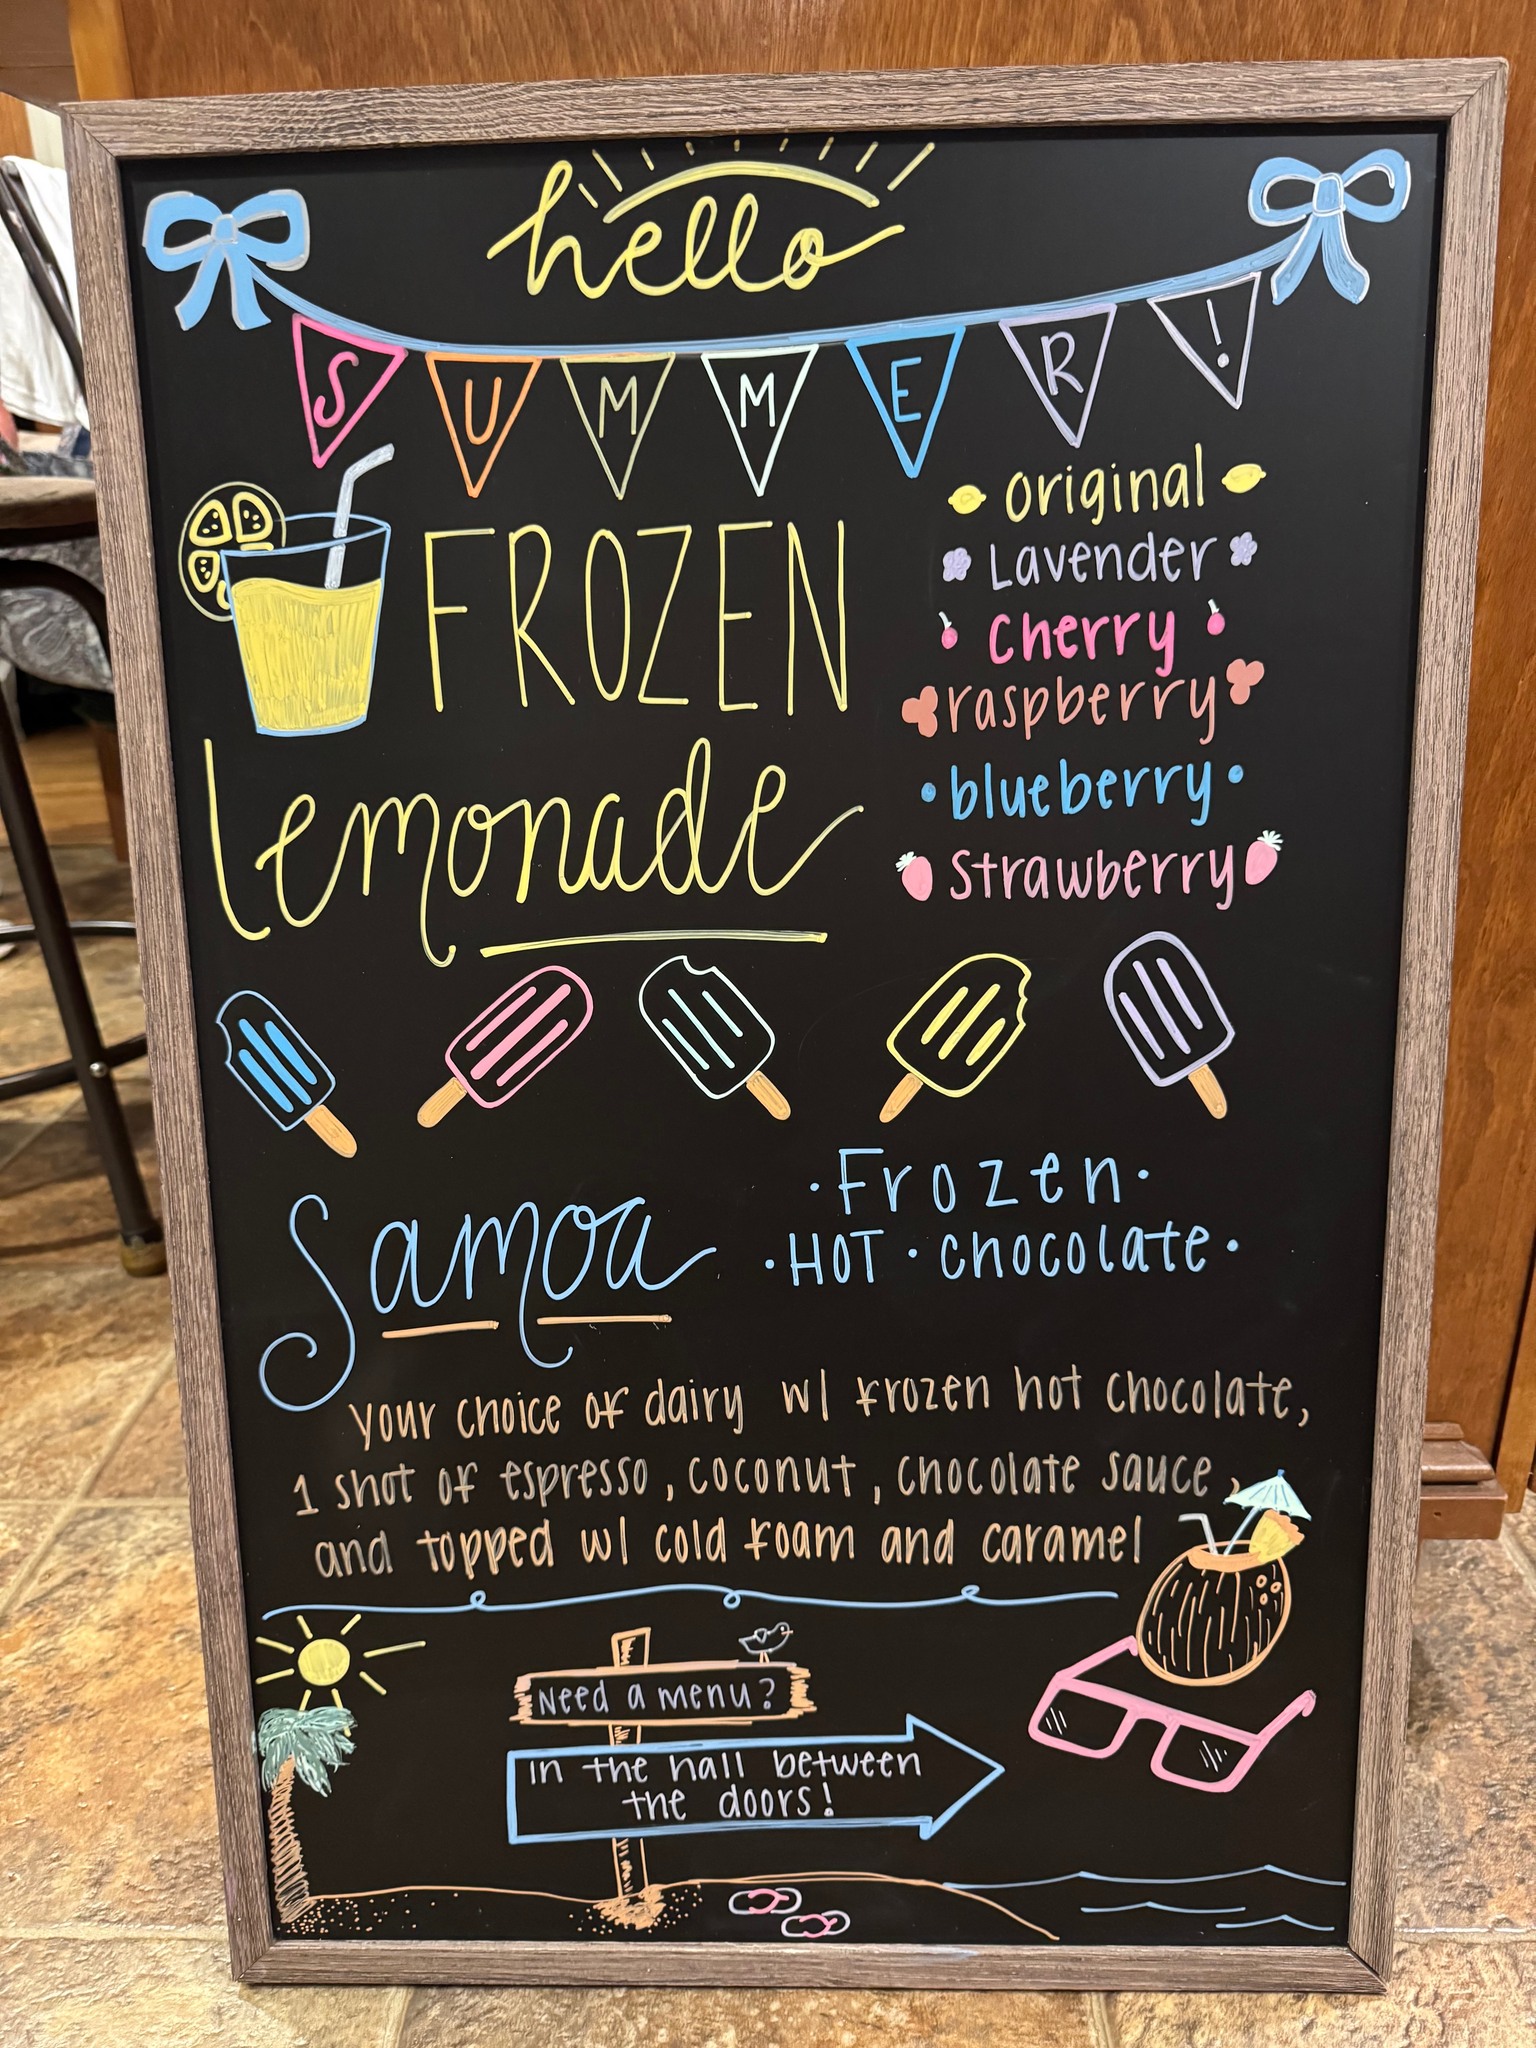 hello
SUMMER!
FROZEN
Lemonade
original
Lavender
cherry
raspberry
blueberry
strawberry
Samoa
·Frozen·
·HOT·chocolate·
your choice of dairy w/ frozen hot chocolate,
1 shot of espresso, coconut, chocolate sauce,
and topped w/ cold foam and caramel
Need a menu?
In the hall between
the doors!